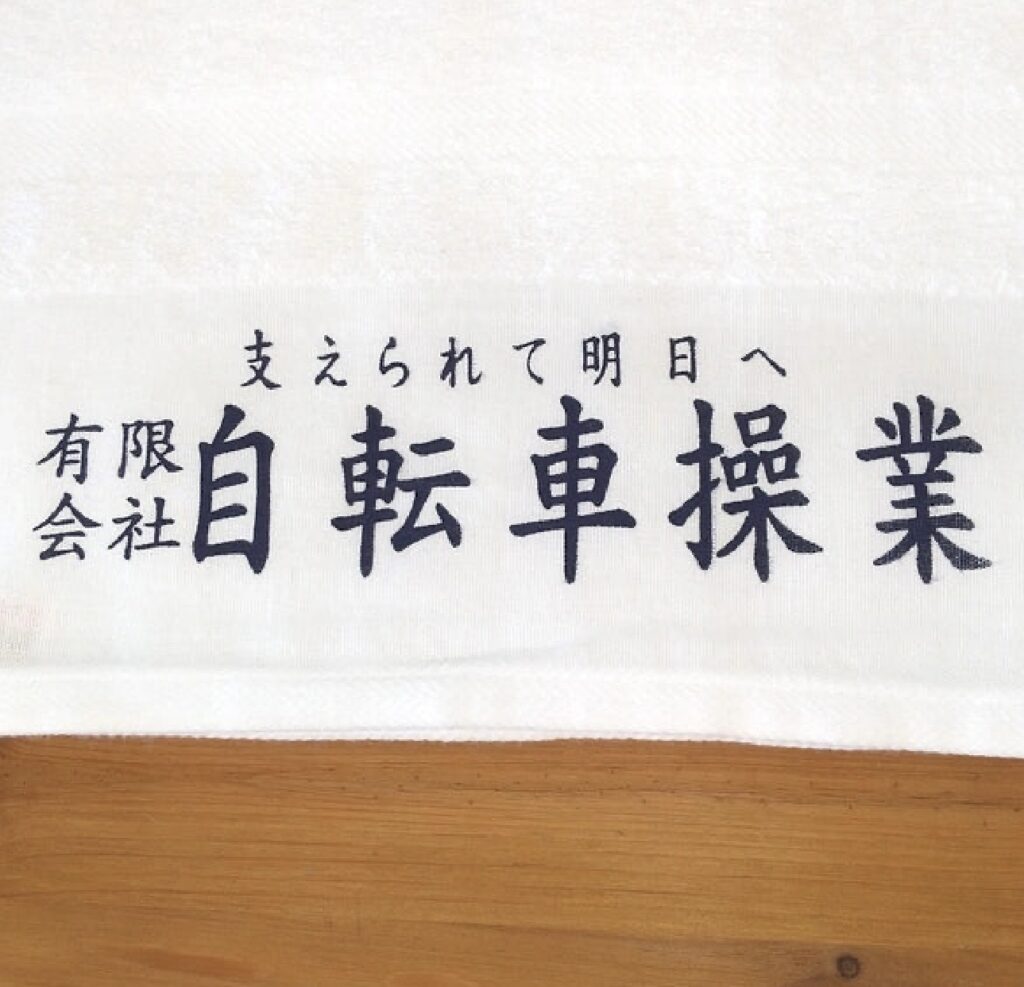 支えられて明日へ
有限会社 自転車操業